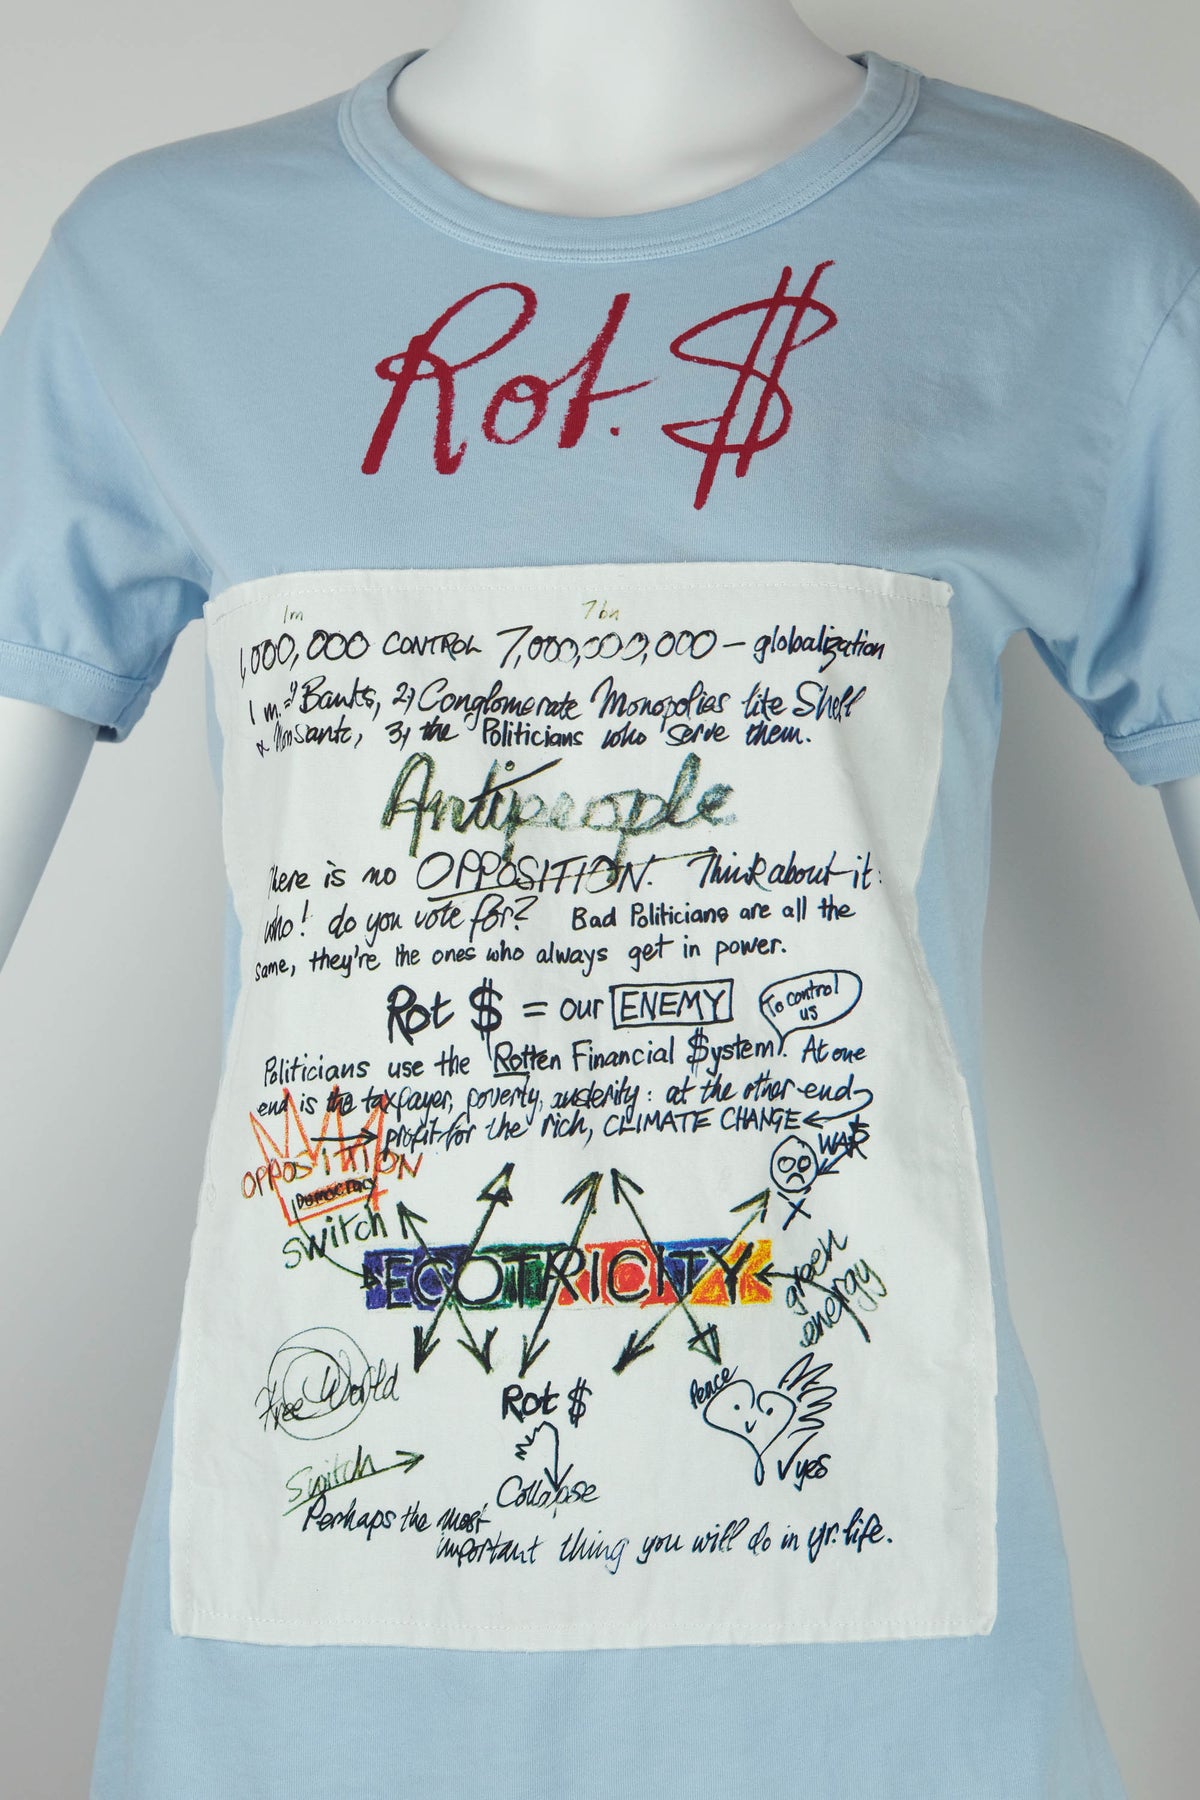 Rot. $
1m 7bn
1,000,000 CONTROL 7,000,000,000 – globalization
1 m. = 1) Banks, 2) Conglomerate Monopolies like Shell
& Monsanto, 3) the Politicians who serve them.
Antipeople
There is no OPPOSITION. Think about it:
who! do you vote for? Bad Politicians are all the
same, they're the ones who always get in power.
Rot $ = our ENEMY
To control
us
Politicians use the Rotten Financial $ystem. At one
end is the taxpayer, poverty, austerity: at the other end
profit for the rich, CLIMATE CHANGE
WAR
OPPOSITION
Democracy
Switch
X
ECOTRICITY
green
energy
Free World
Rot $
Peace
√yes
Switch
Collapse
Perhaps the most
important thing you will do in yr. life.